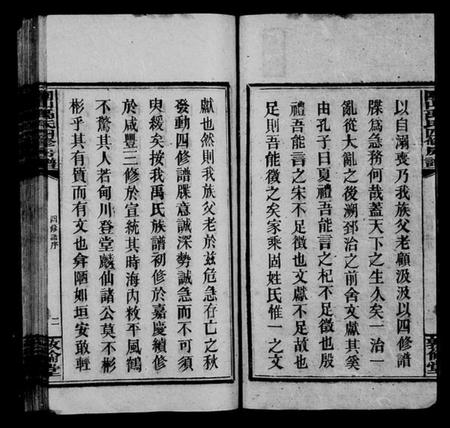 以自溺喪乃我族父老顧汲汲以四修譜
牒爲急務何哉蓋天下之生久矣一治一
亂從大亂之後溯郅治之前舍文獻其奚
由孔子曰夏禮吾能言之杞不足徵也殷
禮吾能言之宋不足徵也文獻不足故也
足則吾能徵之矣家乘固姓氏惟一之文
獻也然則我族父老於茲危急存亡之秋
發動四修譜牒意誠深勢誠急而不可須
臾緩矣按我禹氏族譜初修於嘉慶續修
於咸豐三修於宣統其時海內敉平風鶴
不驚其人若甸川登堂麟仙諸公莫不彬
彬乎其有質而有文也弇陋如垣安敢輕
四修譜序
二
敦倫堂